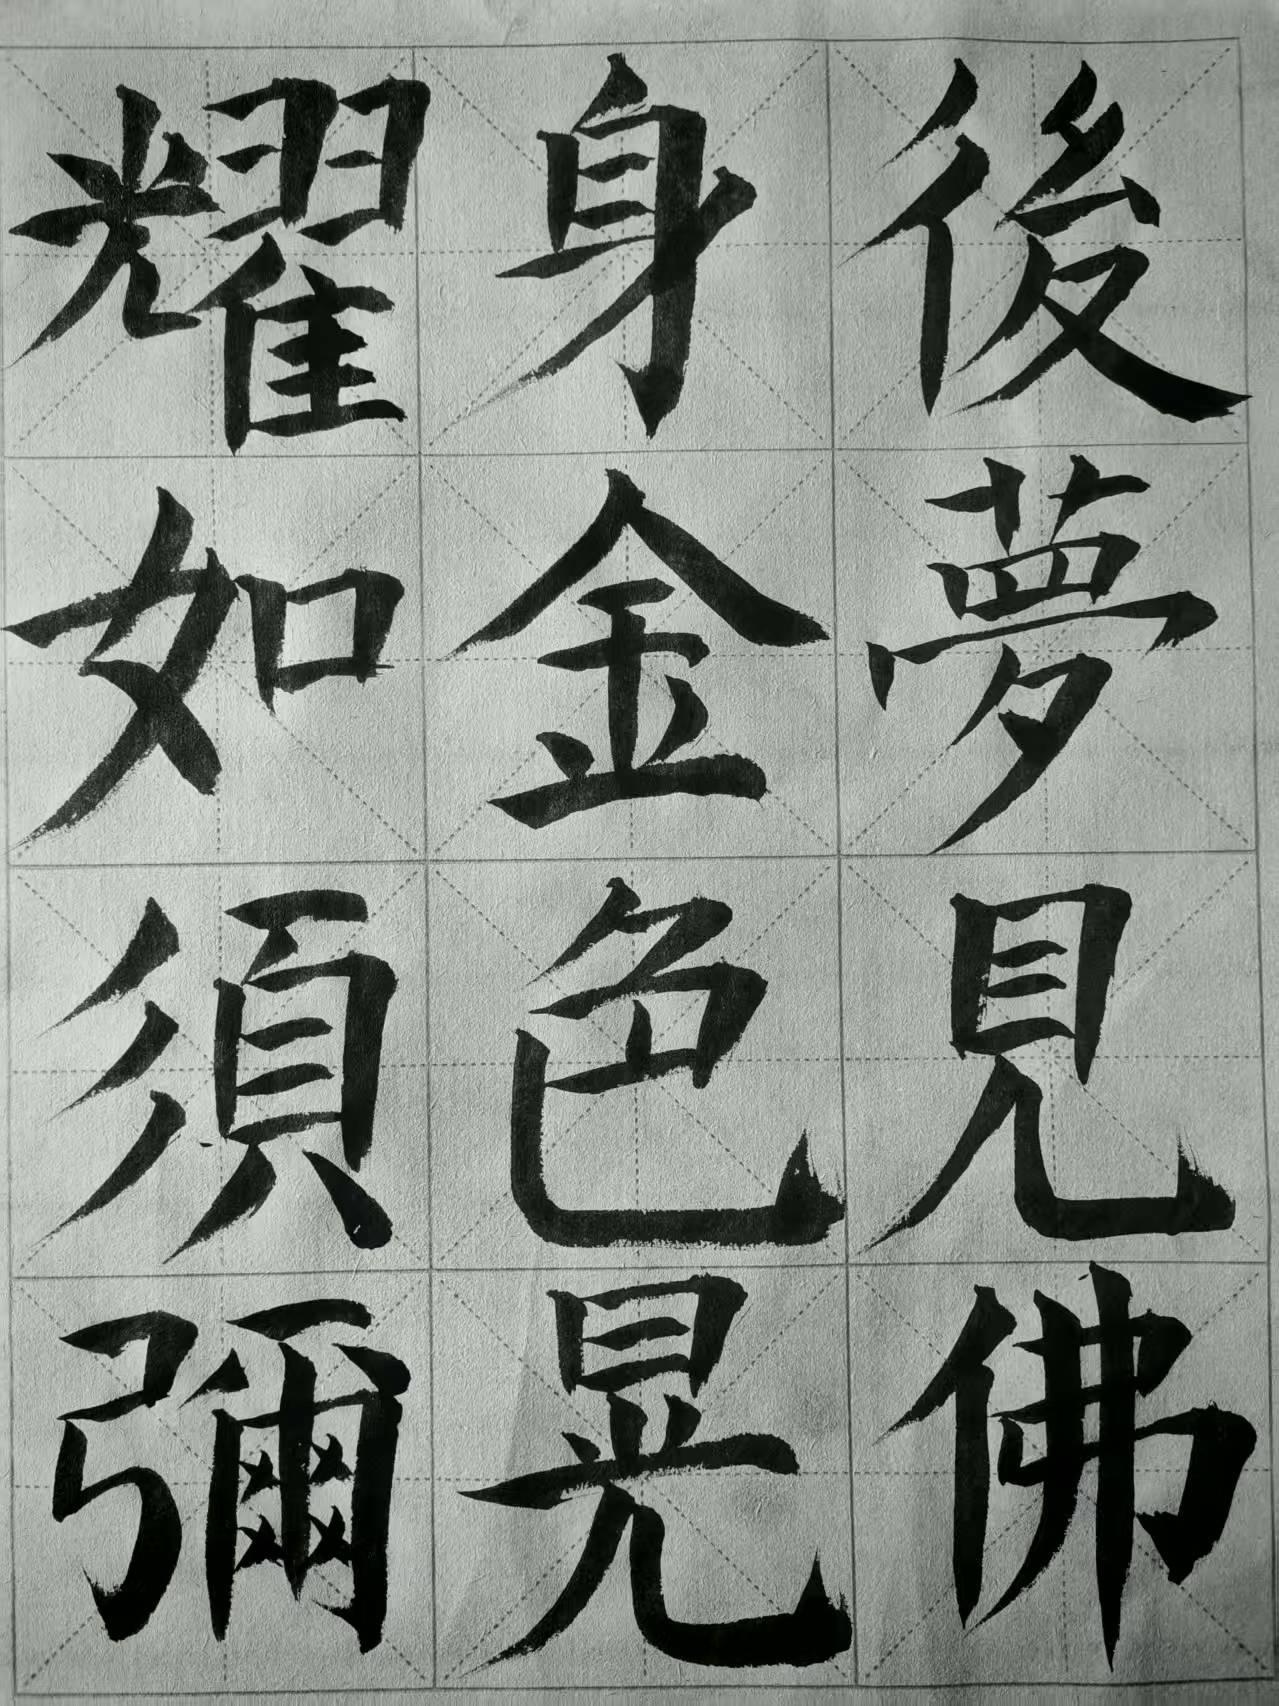 後夢見佛
身金色晃
耀如須彌